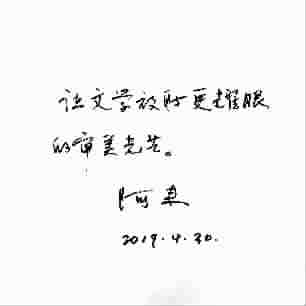 让文学放射更耀眼
的审美光芒。
阿来
2019.4.30.